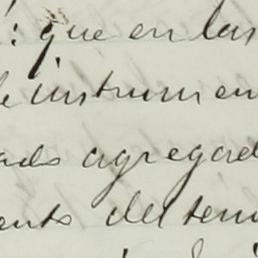 : que en las
de instrumen
ado agregad
ento del tem